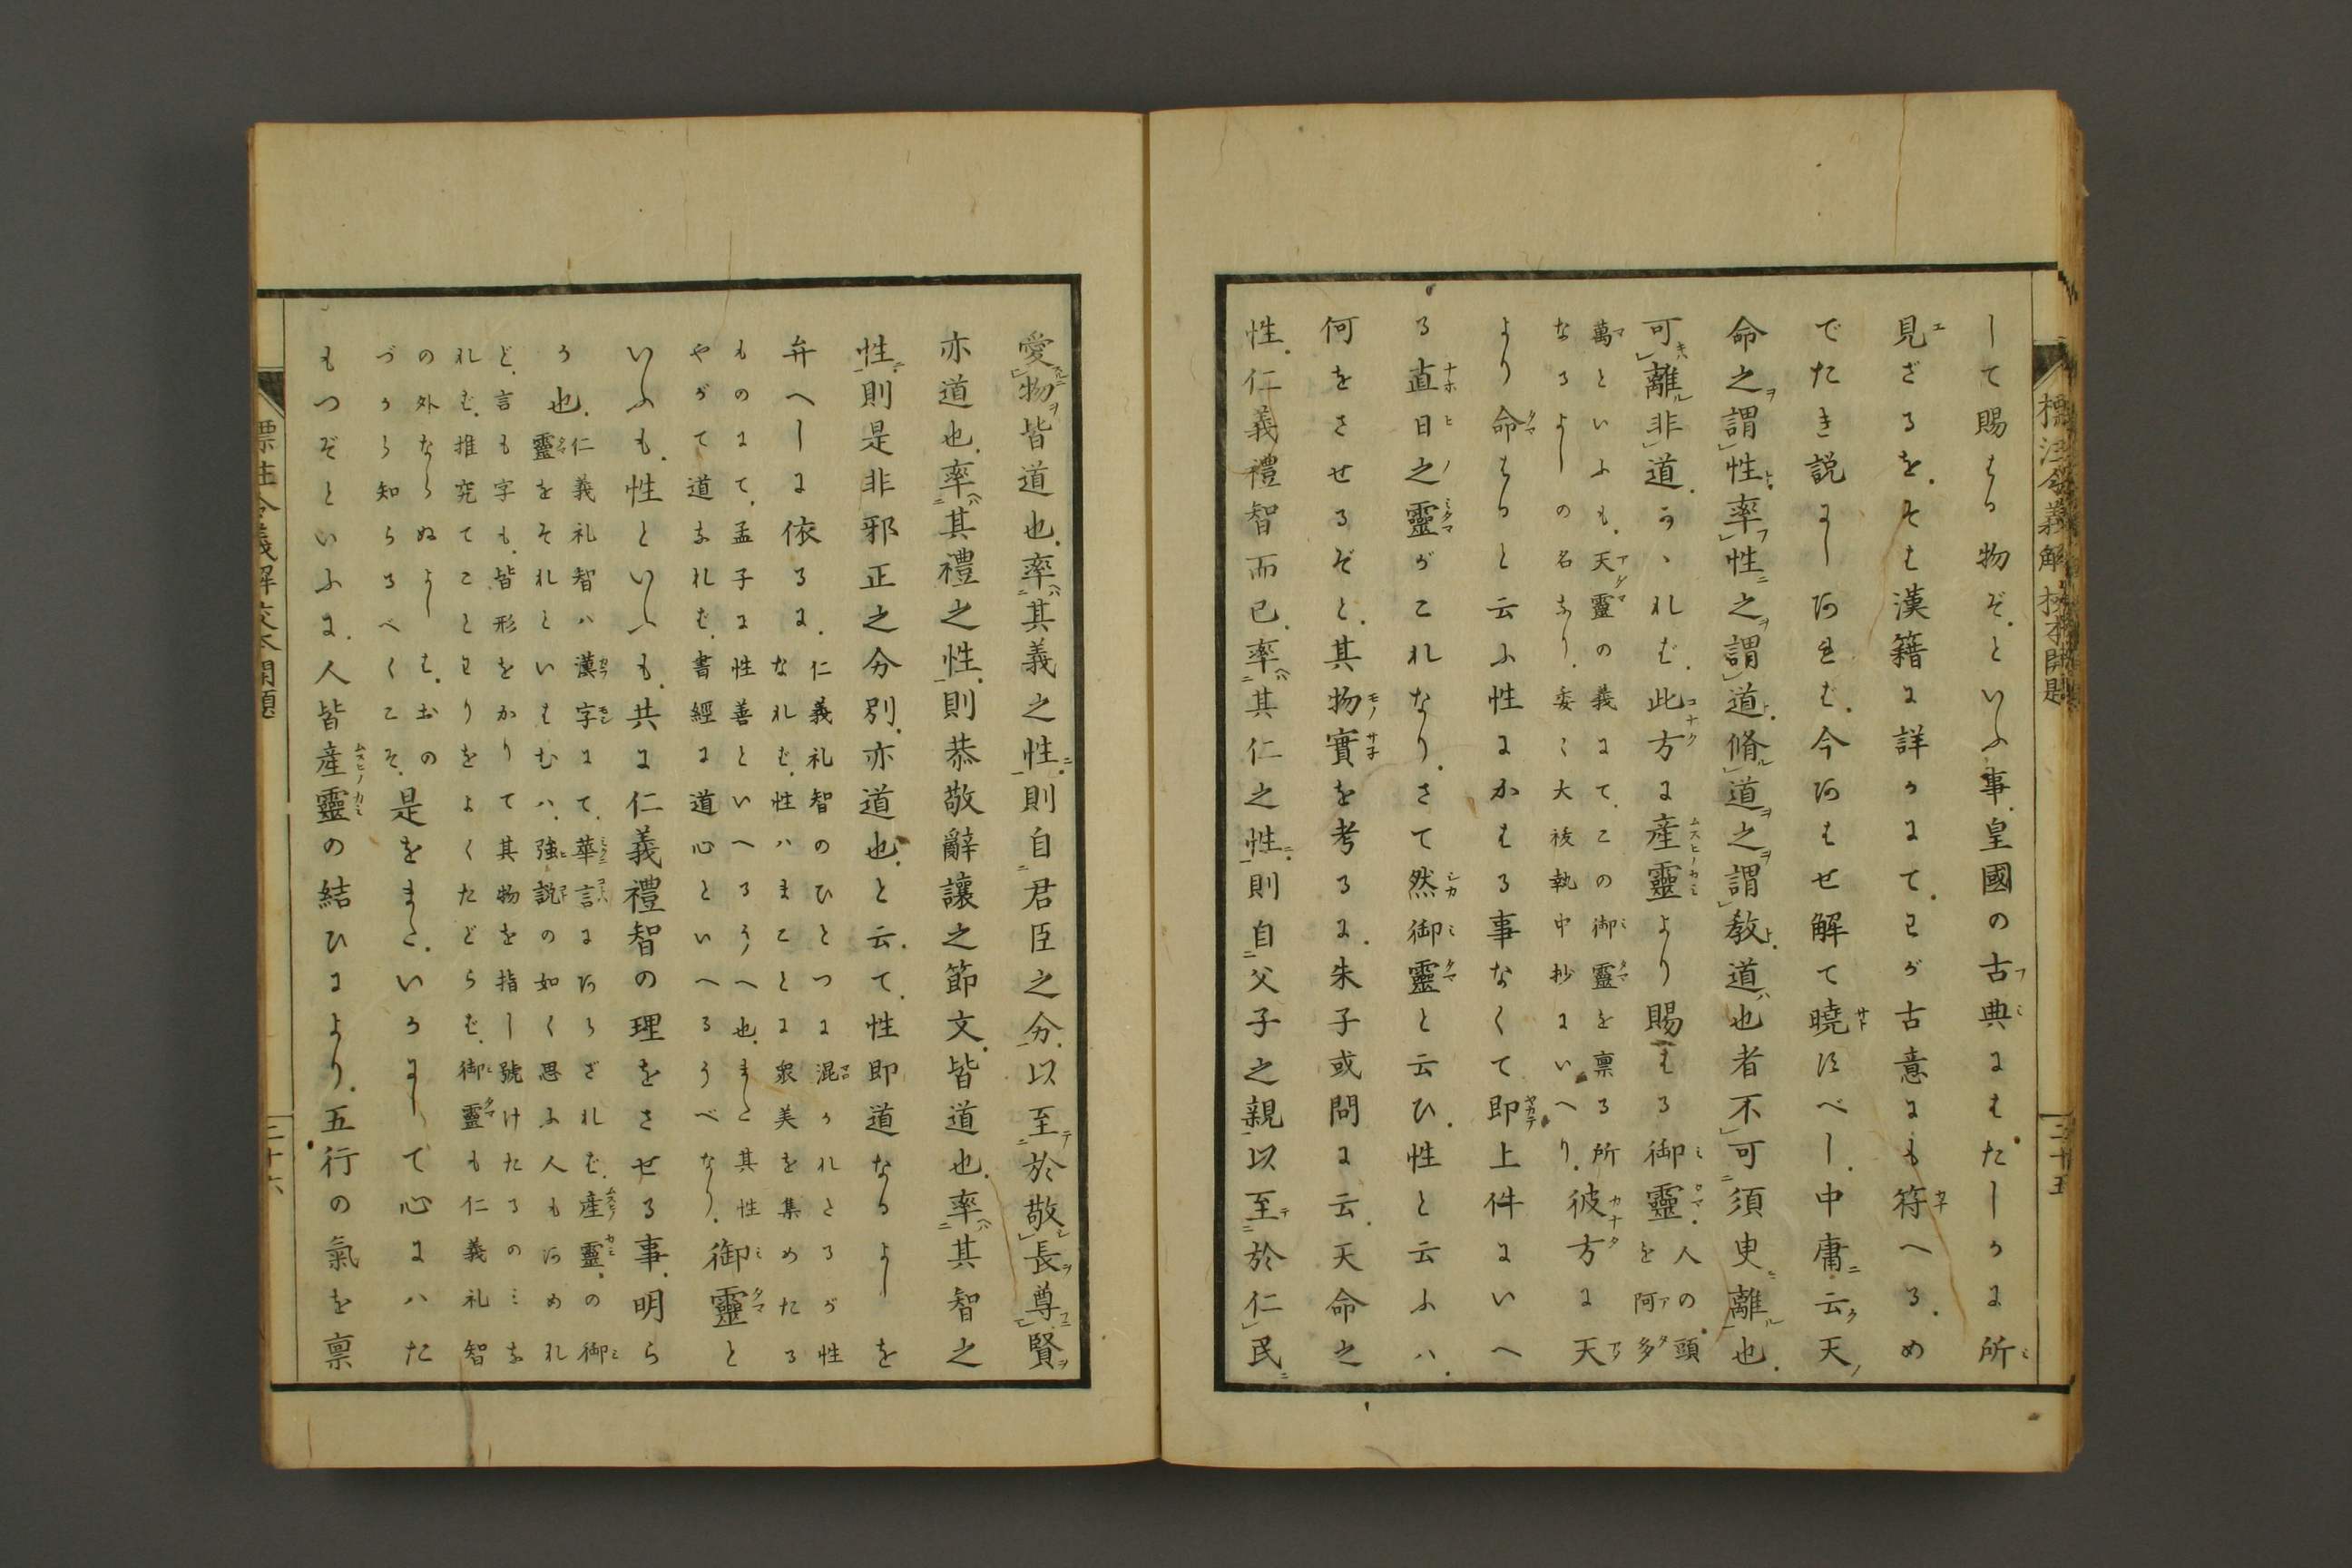 標注令義解挍本開題
三十五
して賜はる物ぞ、といふ事、皇國の古典にはたしかに所
見ざるを、そは漢籍に詳かにて、わが古意にも符へる、め
でたき説にしあれば、今あはせ解て曉すべし、中庸云天
命之謂性率性之謂道脩道之謂教道也者不可須臾離也
可離非道、かゝれば、此方に産靈より賜はる御靈、人の頭を阿多
萬といふも、天靈の義にて、この御靈を禀る所
なるよしの名なり、委く大祓執中抄にいへり、彼方に天
より命はると云ふ性にかはる事なくて即上件にいへ
る直日之靈がこれなり、さて然御靈と云ひ、性と云ふハ、
何をさせるぞと、其物實を考るに、朱子或問に云、天命之
性、仁義禮智而已、率其仁之性、則自父子之親以至於仁民
愛物皆道也、率其義之性、則自君臣之分、以至於敬長尊賢
亦道也、率其禮之性、則恭敬辭讓之節文、皆道也、率其智之
性、則是非邪正之分別、亦道也、と云て、性即道なるよしを
弁へしに依るに、仁義礼智のひとつに混かれとるが性
なれど、性ハまことに衆美を集めたる
ものにて、孟子に性善といへるうへ也、また其性
やがて道なれば、書經に道心といへるうべなり、御靈と
いふも、性といふも、共に仁義禮智の理をさせる事、明ら
か也、仁義礼智ハ漢字にて、華言にあらざれば、産靈の御
靈をそれといはむハ、強説の如く思ふ人もあめれ
ど、言も字も、皆形をかりて其物を指し號けたるのミな
れば、推究てことわりをよくたどらば、御靈も仁義礼智
の外ならぬよしは、おの
づから知らるべくこそ、是をまた、いかにして心にハた
もつぞといふに、人皆産靈の結ひにより、五行の氣を禀
標注令義解挍本開題
三十六